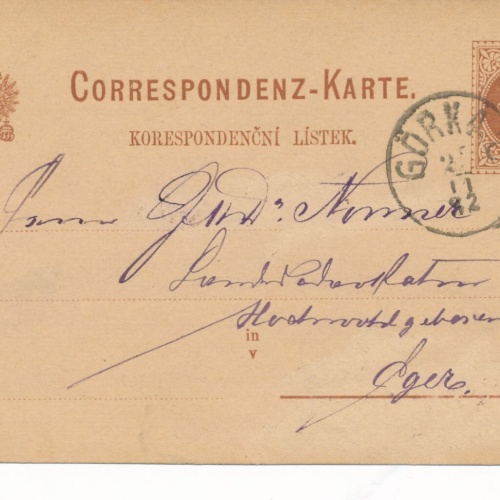 CORRESPONDENZ-KARTE.
KORESPONDENČNÍ LÍSTEK.
GÖRK
11
82
Herrn
Landesadvokaten
Hochwohlgeboren
in
v
Eger.